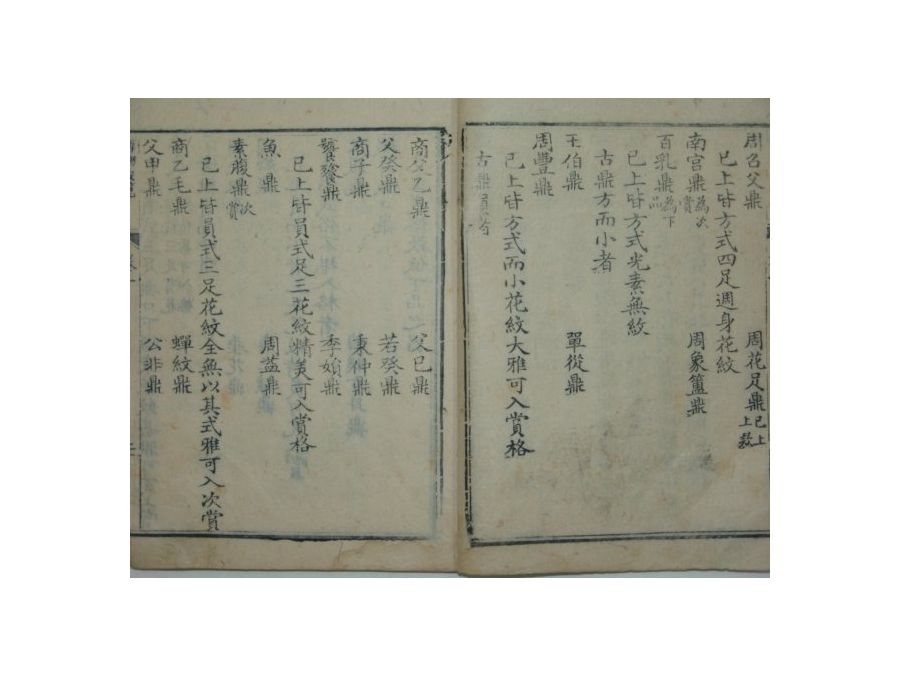 周召父鼎 周花足鼎 已上上赦
已上皆方式四足週身花紋
南宮鼎為次賞 周象簠鼎
百乳鼎為下品
已上皆方式光素無紋
古鼎方而小者
王伯鼎 單從鼎
周豐鼎
已上皆方式而小花紋大雅可入賞格
古鼎員者
商父乙鼎 父已鼎
父癸鼎 若癸鼎
商子鼎 秉仲鼎
饕餮鼎 李媜鼎
已上皆員式足三花紋精美可入賞格
魚鼎 周益鼎
素腹鼎次賞
已上皆員式三足花紋全無以其式雅可入次賞
商乙毛鼎 蟬紋鼎
父甲鼎 公非鼎